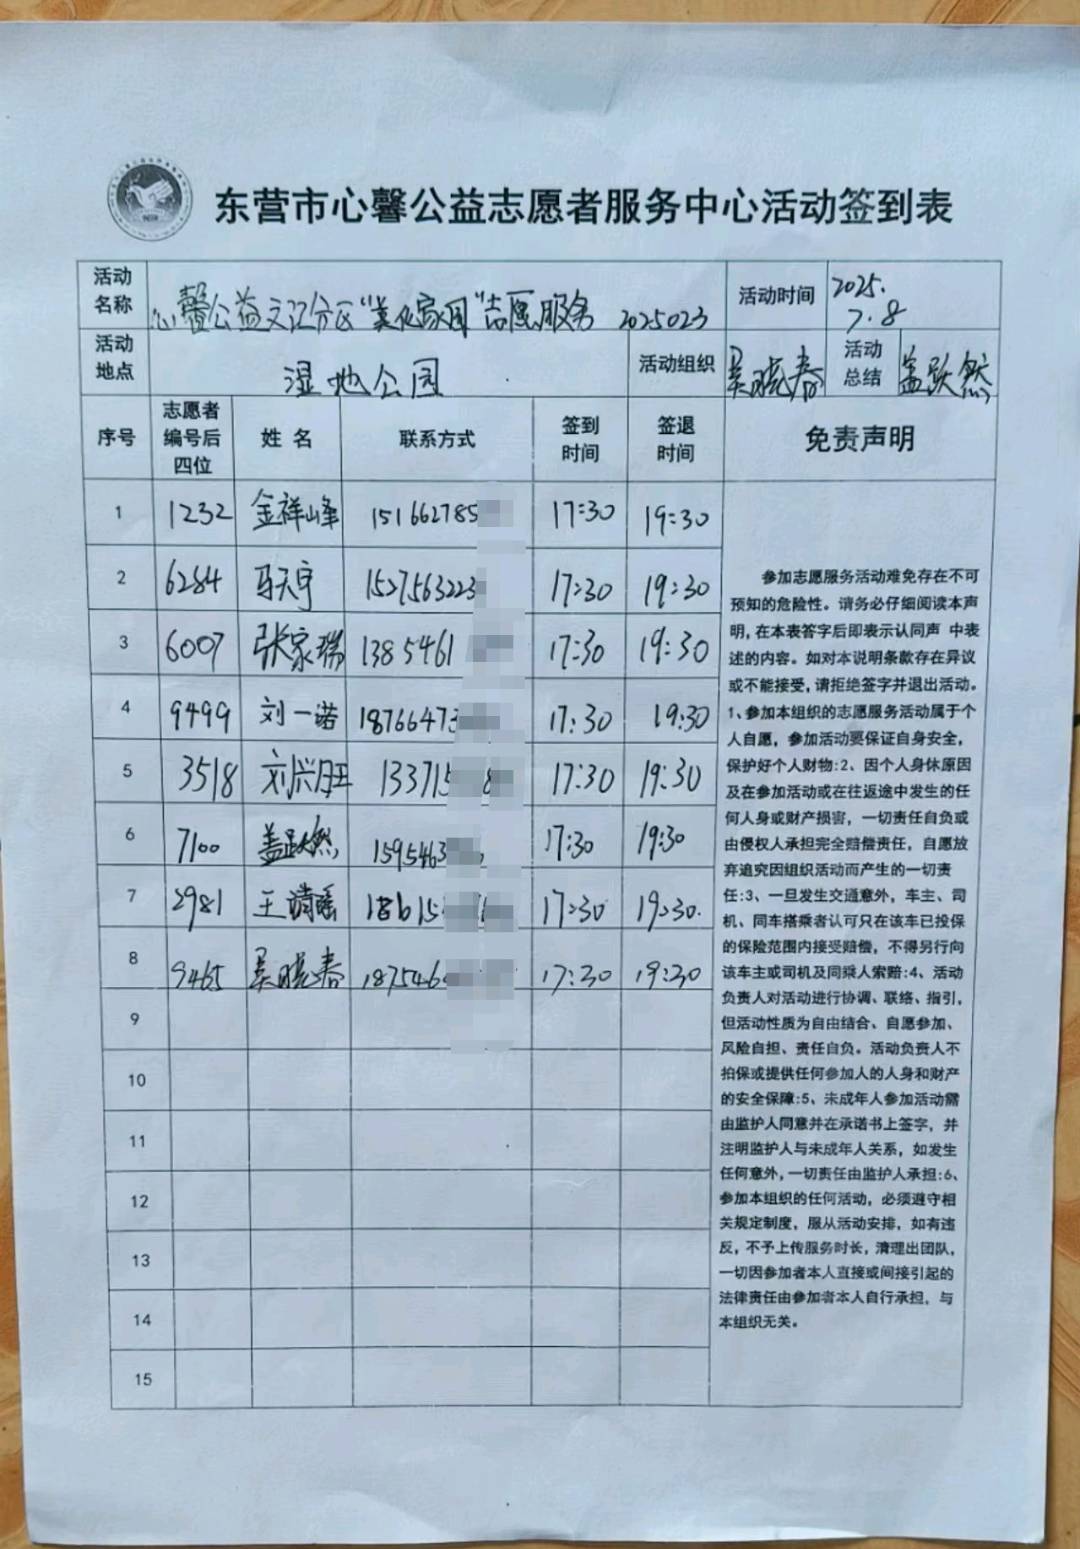 东营市心馨公益志愿者服务中心活动签到表
活动名称 心馨公益文汇分区“美化家园”志愿服务 2025023 活动时间 2025.7.8
活动地点 湿地公园 活动组织 吴晓春 活动总结 盖跃然
序号 志愿者编号后四位 姓名 联系方式 签到时间 签退时间 免责声明
1 1232 金祥峰 151662785 17:30 19:30
2 6284 马天宇 1527563223 17:30 19:30
3 6007 张家瑞 1385461 17:30 19:30
4 9499 刘一诺 18766473 17:30 19:30
5 3518 刘兴旺 133715 17:30 19:30
6 7100 盖跃然 1595463 17:30 19:30
7 2981 王靖瑶 18615 17:30 19:30.
8 9465 吴晓春 187546 17:30 19:30
9
10
11
12
13
14
15
参加志愿服务活动难免存在不可
预知的危险性。请务必仔细阅读本声
明,在本表答字后即表示认同声 中表
述的内容。如对本说明条款存在异议
或不能接受,请拒绝签字并退出活动。
1、参加本组织的志愿服务活动属于个
人自愿，参加活动要保证自身安全，
保护好个人财物:2、因个人身休原因
及在参加活动或在往返途中发生的任
何人身或财产损害，一切责任自负或
由侵权人承担完全赔偿责任，自愿放
弃追究因组织活动而产生的一切责
任:3、一旦发生交通意外，车主、司
机、同车搭乘者认可只在该车已投保
的保险范围内接受赔偿，不得另行向
该车主或司机及同乘人索赔:4、活动
负责人对活动进行协调、联络、指引，
但活动性质为自由结合、自愿参加、
风险自担、责任自负。活动负责人不
拍保或提供任何参加人的人身和财产
的安全保障:5、未成年人参加活动需
由监护人同意并在承诺书上签字，并
注明监护人与未成年人关系，如发生
任何意外,一切责任由监护人承担:6、
参加本组织的任何活动，必须遵守相
关规定制度，服从活动安排，如有违
反，不予上传服务时长，清理出团队，
一切因参加者本人直接或间接引起的
法律责任由参加者本人自行承担，与
本组织无关。